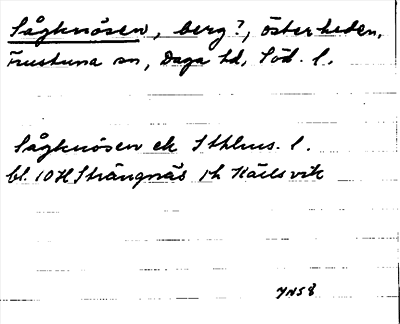 Sågknösen, berg?, österheden,
Frustuna sn, Daga hd, Söd. l.
Sågknösen ek Sthlms. l.
bl. 10H Strängnäs 1h Kärlsvik